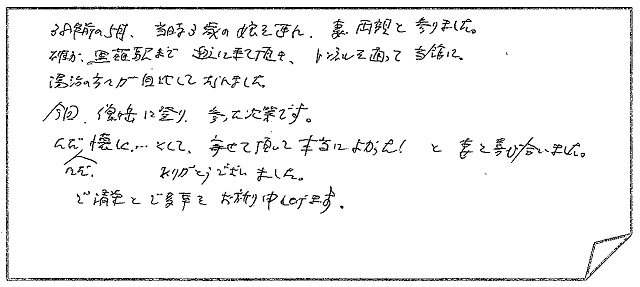 38年前の5月、当時3歳の娘を連れ、妻、両親と参りました。
確か、黒薙駅まで迎えに来て頂き、トンネルを通って当館に。
湯治の方々が自炊しておられました。
今回、僧ヶ岳に登り、参った次第です。
ただ懐しい…として、寄せて頂いて本当によかった! と妻と喜び合いました。
ただ、ありがとうございました。
ご清栄とご多幸をお祈り申し上げます。